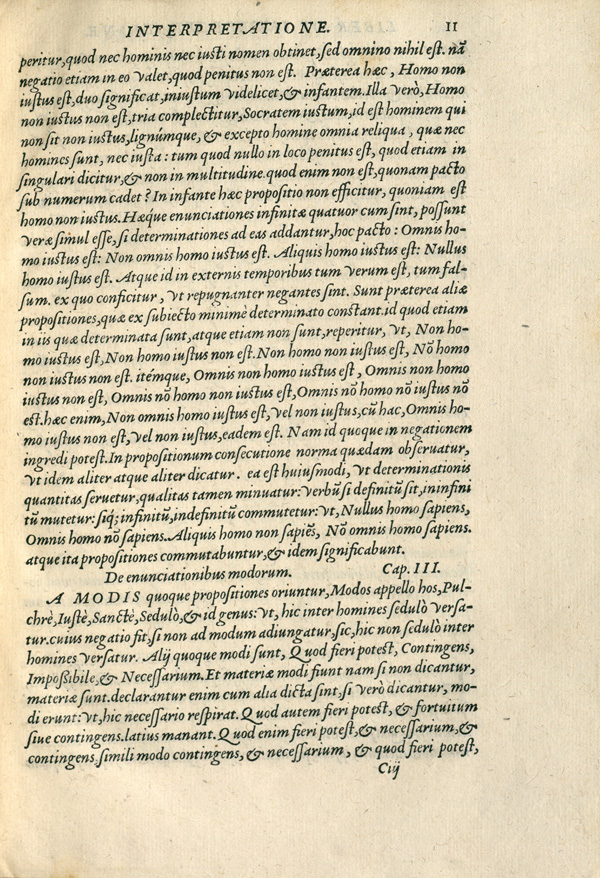 INTERPRETATIONE. 11
peritur, quod nec hominis nec iusti nomen obtinet, sed omnino nihil est. nā
negatio etiam in eo valet, quod penitus non est. Præterea hæc, Homo non
iustus est, duo significat, iniustum videlicet, & infantem. Illa verò, Homo
non iustus non est, tria complectitur, Socratem iustum, id est hominem qui
non sit non iustus, lignúmque, & excepto homine omnia reliqua, quæ nec
homines sunt, nec iusta: tum quod nullo in loco penitus est, quod etiam in
singulari dicitur, & non in multitudine. quod enim non est, quonam pacto
sub numerum cadet? In infante hæc propositio non efficitur, quoniam est
homo non iustus. Hæque enunciationes infinitæ quatuor cum sint, possunt
veræ simul esse, si determinationes ad eas addantur, hoc pacto: Omnis ho-
mo iustus est: Non omnis homo iustus est. Aliquis homo iustus est: Nullus
homo iustus est. Atque id in externis temporibus tum verum est, tum fal-
sum. ex quo conficitur, vt repugnanter negantes sint. Sunt præterea aliæ
propositiones, quæ ex subiecto minimè determinato constant. id quod etiam
in iis quæ determinata sunt, atque etiam non sunt, reperitur, vt, Non ho-
mo iustus est, Non homo iustus non est. Non homo non iustus est, Nō homo
non iustus non est. itémque, Omnis non homo iustus est, Omnis non homo
iustus non est, Omnis nō homo non iustus est, Omnis nō homo nō iustus nō
est. hæc enim, Non omnis homo iustus est, vel non iustus, cū hac, Omnis ho-
mo iustus non est, vel non iustus, eadem est. Nam id quoque in negationem
ingredi potest. In propositionum consecutione norma quædam obseruatur,
vt idem aliter atque aliter dicatur. ea est huiusmodi, vt determinationis
quantitas seruetur, qualitas tamen minuatur: verbū si definitū sit, in infini
tū mutetur: siq; infinitū, indefinitū commutetur: vt, Nullus homo sapiens,
Omnis homo nō sapiens. Aliquis homo non sapiēs, Nō omnis homo sapiens.
atque ita propositiones commutabuntur, & idem significabunt.
De enunciationibus modorum. Cap. III.
A MODIS quoque propositiones oriuntur, Modos appello hos, Pul-
chrè, Iustè, Sanctè, Sedulò, & id genus: vt, hic inter homines sedulò versa-
tur. cuius negatio fit, si non ad modum adiungatur, sic, hic non sedulò inter
homines versatur. Alij quoque modi sunt, Quod fieri potest, Contingens,
Impoßibile, & Necessarium. Et materiæ modi fiunt nam si non dicantur,
materiæ sunt. declarantur enim cum alia dicta sint, si verò dicantur, mo-
di erunt: vt, hic necessario respirat. Quod autem fieri potest, & fortuitum
siue contingens. latius manant. Quod enim fieri potest, & necessarium, &
contingens, simili modo contingens, & necessarium, & quod fieri potest,
Cij